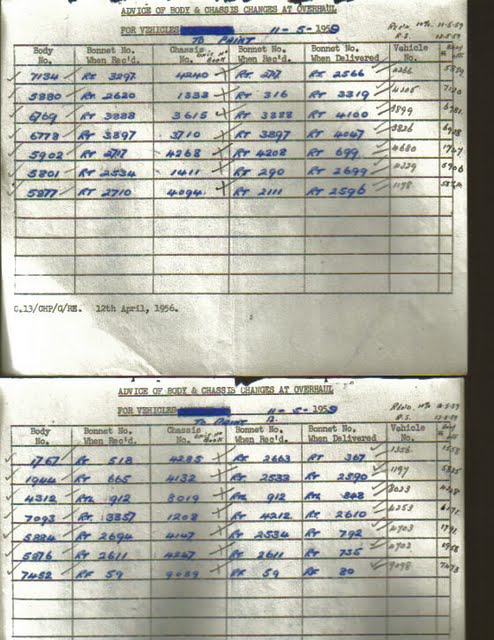 ADVICE OF BODY & CHASSIS CHANGES AT OVERHAUL
FOR VEHICLES 11-5-1959
TO PAINT
Body No. Bonnet No. When Rec'd. Chassis No. Bonnet No. When Rec'd. Bonnet No. When Delivered Vehicle No.
7134 RT 3297 4240 RT 2717 RT 2566
5880 RT 2620 1333 RT 316 RT 3319
6769 RT 3888 3615 RT 3888 RT 4100 3899
6773 RT 3897 3710 RT 3897 RT 4047 3826
5902 RT 2717 4268 RT 4208 RT 699 4680
5801 RT 2534 1411 RT 290 RT 2699 4229
5877 RT 2710 4094 RT 2111 RT 2596 1178
C.13/CHP/G/RE. 12th April, 1956.
ADVICE OF BODY & CHASSIS CHANGES AT OVERHAUL
FOR VEHICLES 11-5-1959
TO PAINT
Body No. Bonnet No. When Rec'd. Chassis No. Bonnet No. When Rec'd. Bonnet No. When Delivered Vehicle No.
1767 RT 518 4285 RT 2663 RT 367 1356 1558
1944 RT 665 4132 RT 2532 RT 2590 1197
4312 RTL 912 8019 RTL 912 RTL 848 8023
7093 RT 3357 1208 RT 4212 RT 2610 4253
5884 RT 2694 4147 RT 2534 RT 792 4703
5876 RT 2611 4247 RT 2611 RT 735 4702
7452 RF 59 9039 RF 59 RF 80 9098